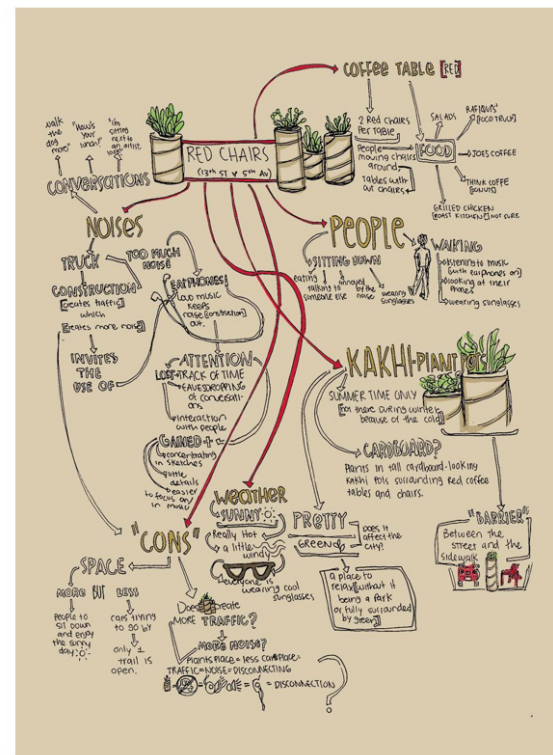 COFFEE TABLE [RED]
2 Red Chairs
Per Table
People
moving chairs
around
Tables with
out chairs
FOOD
SALADS
[FOOD TRUCK]
JOES COFFEE
THINK COFFE
[DONUTS]
GRILLED CHICKEN
[ROAST KITCHEN] NOT SURE
RED CHAIRS
(13th ST & 5th AV)
Walk
the
dog
more"
"How's
your
lunch?"
"I'm
sitting
next to
an artist
CONVERSATIONS
NOISES
TRUCK
CONSTRUCTION
[creates traffic]
which
[creates more noise]
INVITES
THE
USE OF
TOO MUCH
NOISE!
EARPHONES!
Loud music
keeps
noise [construction]
out.
ATTENTION
LOSE TRACK OF TIME
EAVESDROPPING
of conversati-
ons
interaction
with people
GAINED +
concentrating
in sketches
little
details
easier
to focus on/
in music
PEOPLE
SITTING DOWN
eating
talking to
someone else
annoyed
by the
noise
wearing
sunglasses
WALKING
listening to music
[with earphones on]
looking at their
phones
wearing sunglasses
KAKHI-PLANT POTS
SUMMER TIME ONLY
[not there during winter
because of the cold]
CARDBOARD?
Plants in tall cardboard-looking
kakhi pots surrounding red coffee
tables and chairs.
"BARRIER"
Between the
street and the
sidewalk
WEATHER
SUNNY
Really Hot
a little
windy
everyone is
wearing cool
sunglasses
PRETTY
GREEN
Does it
affect the
CITY?
a place to
relax [without it
being a Park
or fully surrounded
by green]
"CONS"
SPACE
MORE BUT LESS
people to
sit down
and enjoy
the sunny
day
cars trying
to go by
only 1
trail is
open.
Does create
MORE TRAFFIC?
MORE NOISE?
Plants place = less car place =
TRAFFIC = NOISE = DISCONNECTING
= DISCONNECTION
?